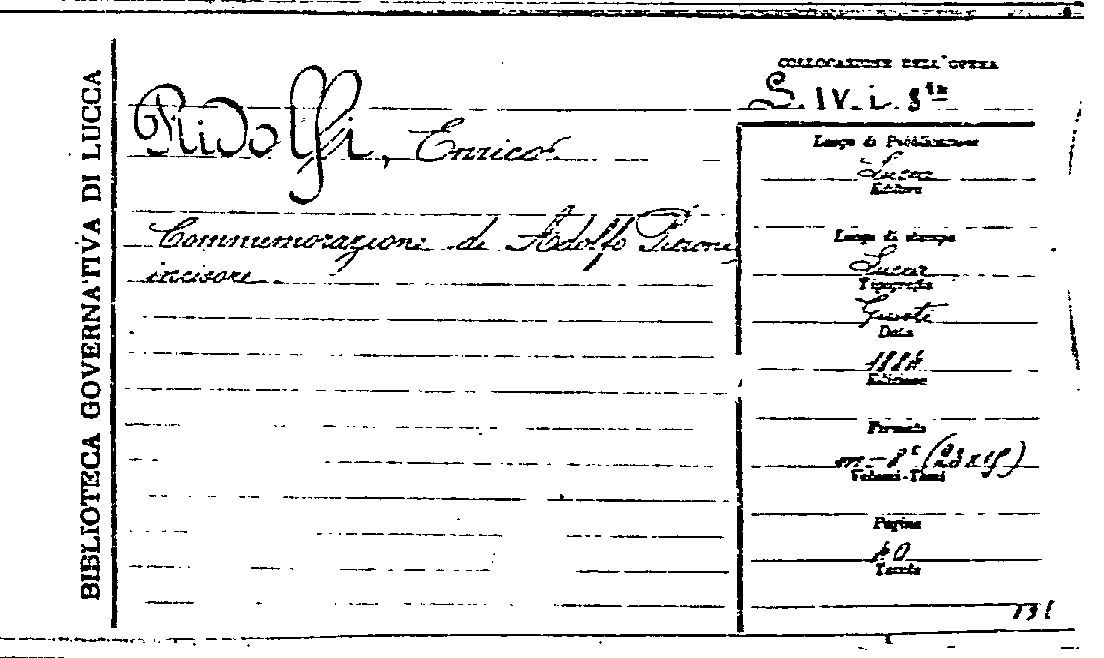 BIBLIOTECA GOVERNATIVA DI LUCCA
COLLOCAZIONE DELL'OPERA
S. IV. i. 8
Ridolfi, Enrico.
Commemorazione di Adolfo Pierone
incisore.
Luogo di Pubblicazione
Lucca
Editore
Luogo di stampa
Lucca
Tipografia
Giusti
Data
Edizione
Formato
Volumi-Tomi
Pagine
Tavole
131